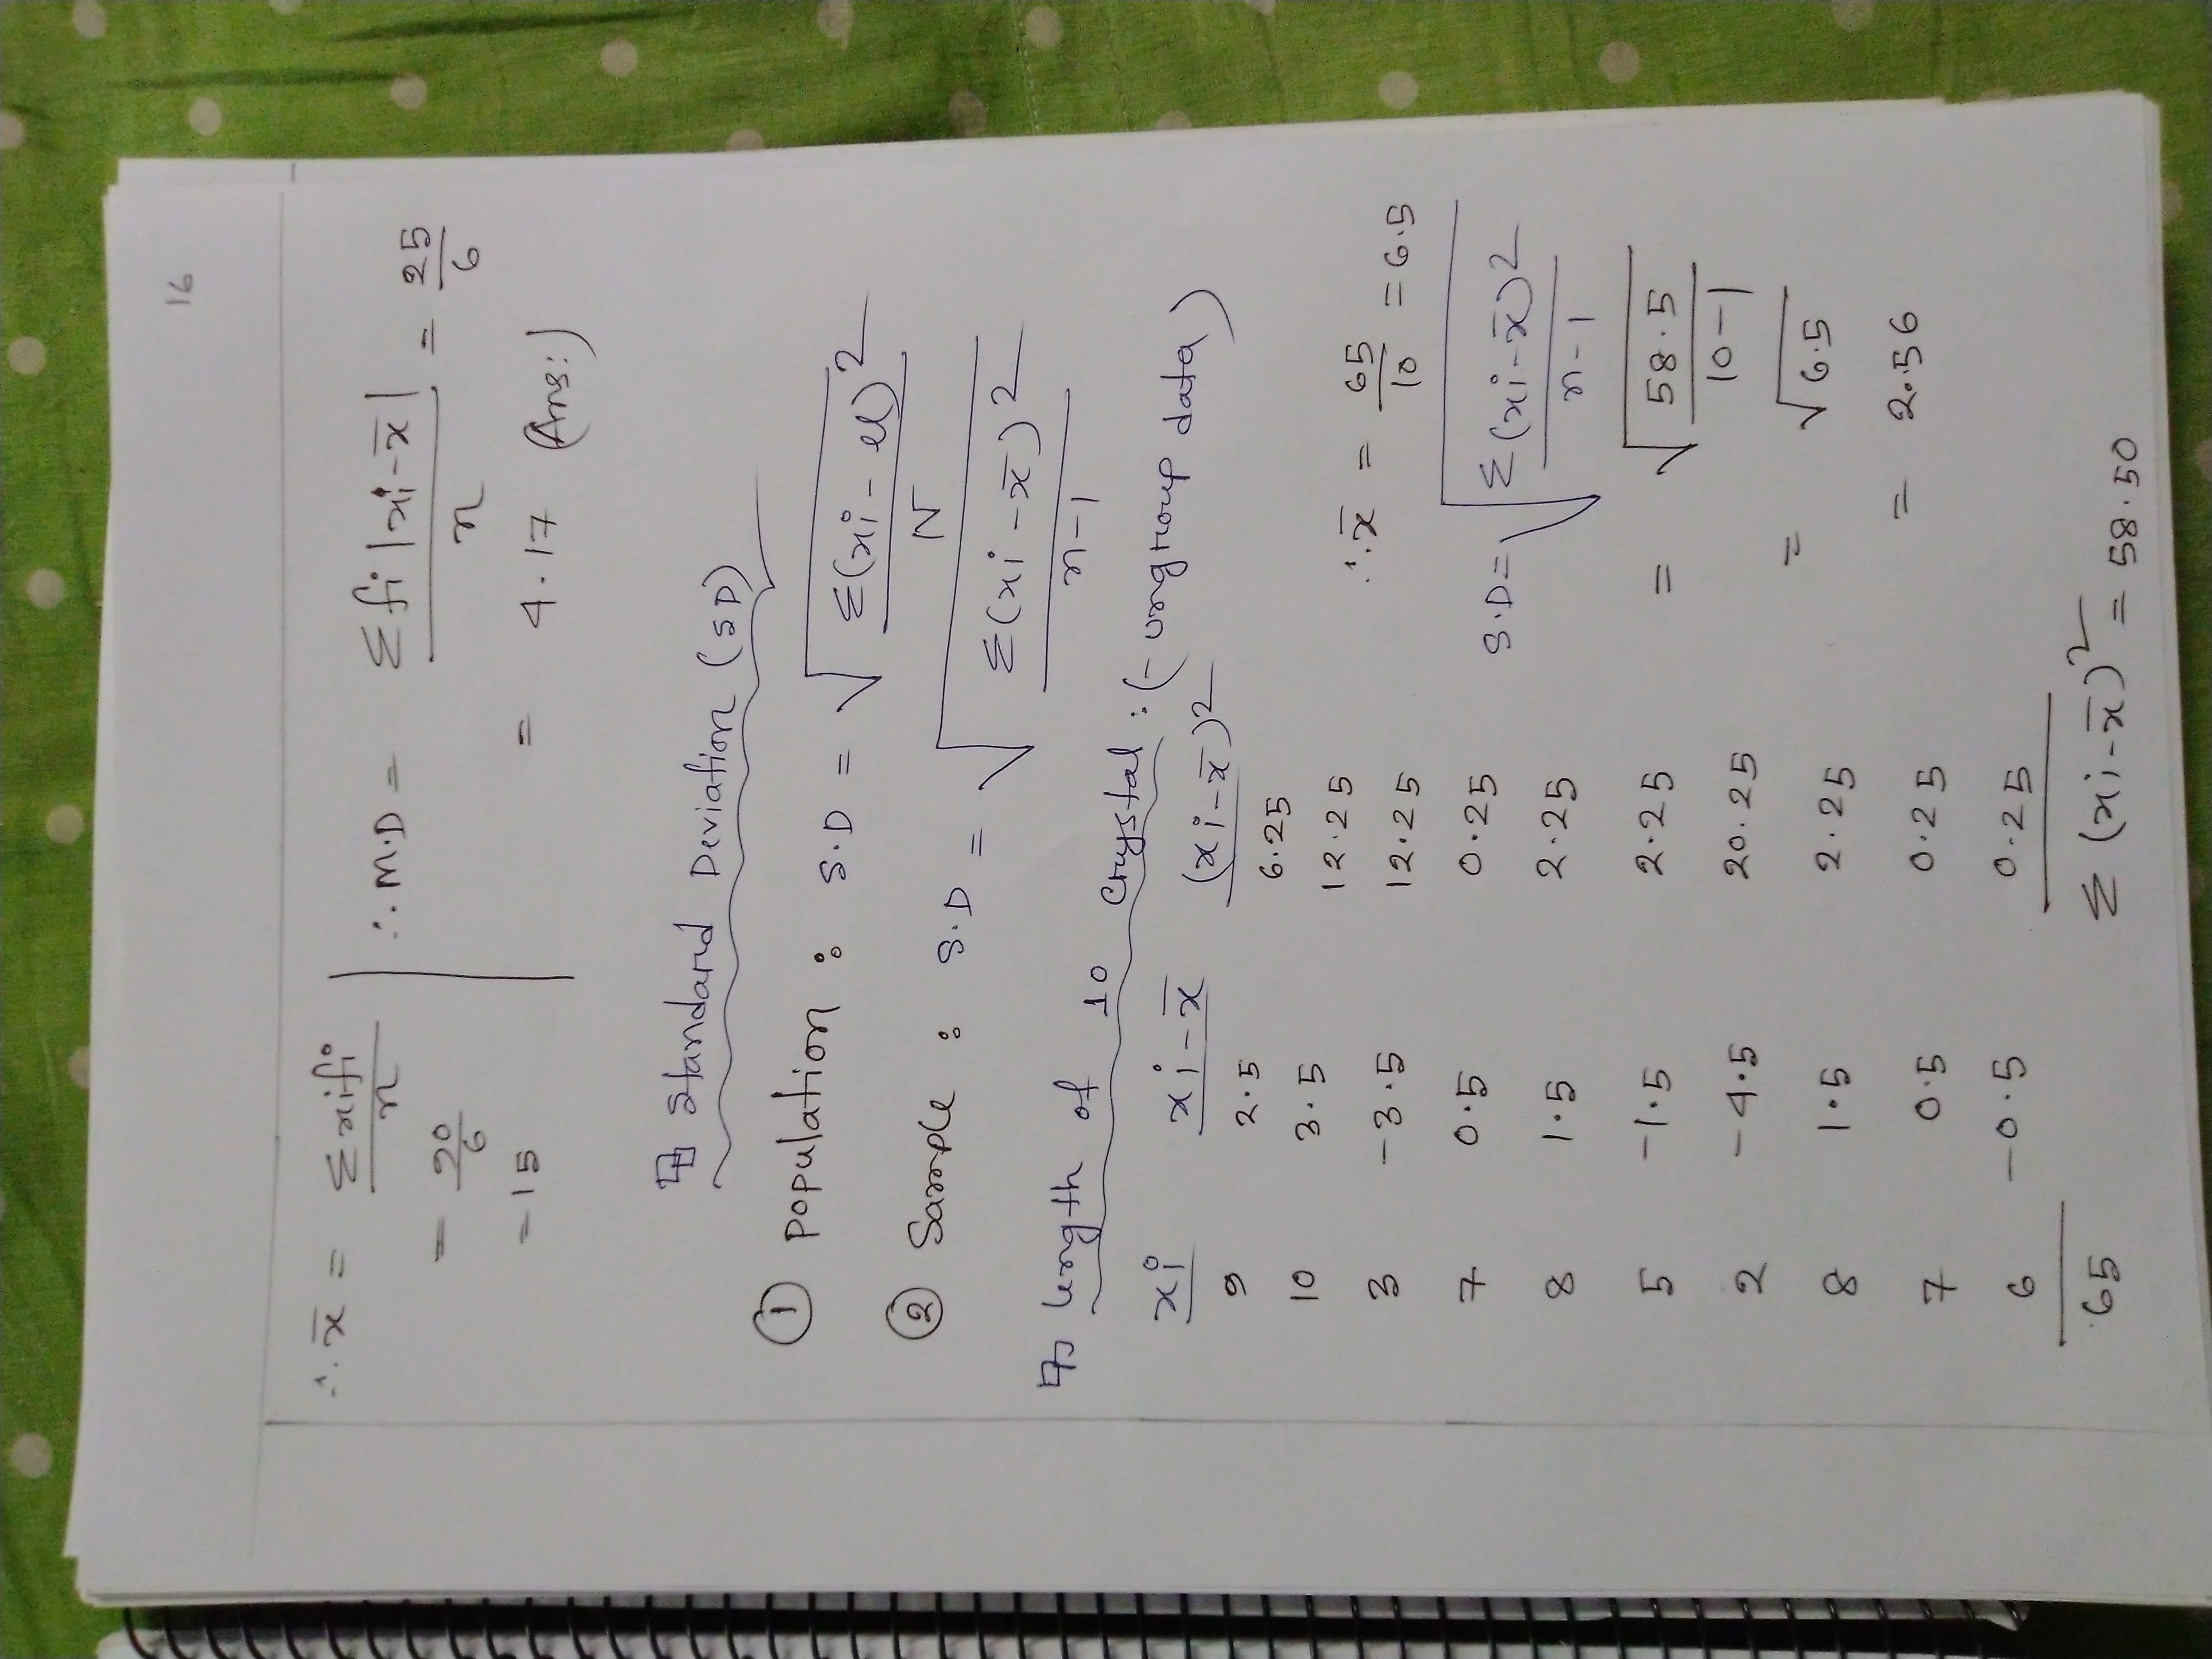 16
∴ x̄ = Σxifi / n
= 20/6
= 15
∴ M.D = Σfi |xi - x̄| / n = 25/6
= 4.17 (Ans:)
Standard Deviation (SD)
① Population : S.D = √(Σ(xi - μ)² / N)
② Sample : S.D = √(Σ(xi - x̄)² / n-1)
length of 10 crystal :(- ungroup data)
xi xi - x̄ (xi - x̄)²
9 2.5 6.25
10 3.5 12.25
3 -3.5 12.25
7 0.5 0.25
8 1.5 2.25
5 -1.5 2.25
2 -4.5 20.25
8 1.5 2.25
7 0.5 0.25
6 -0.5 0.25
65 Σ (xi - x̄)² = 58.50
∴ x̄ = 65/10 = 6.5
S.D = √(Σ(xi - x̄)² / n-1)
= √(58.5 / 10-1)
= √6.5
= 2.56